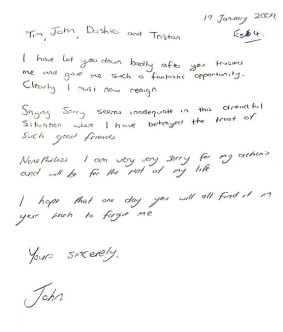 19 January 2004
Tim, John, Dishko and Tristan
I have let you down badly after you trusted
me and gave me such a fantastic opportunity.
Clearly I must now resign
Saying Sorry seems inadequate in this dreadful
situation where I have betrayed the trust of
such good friends
Nonetheless I am very very sorry for my actions
and will be for the rest of my life
I hope that one day you will all find it in
your hearts to forgive me
Yours sincerely,
John